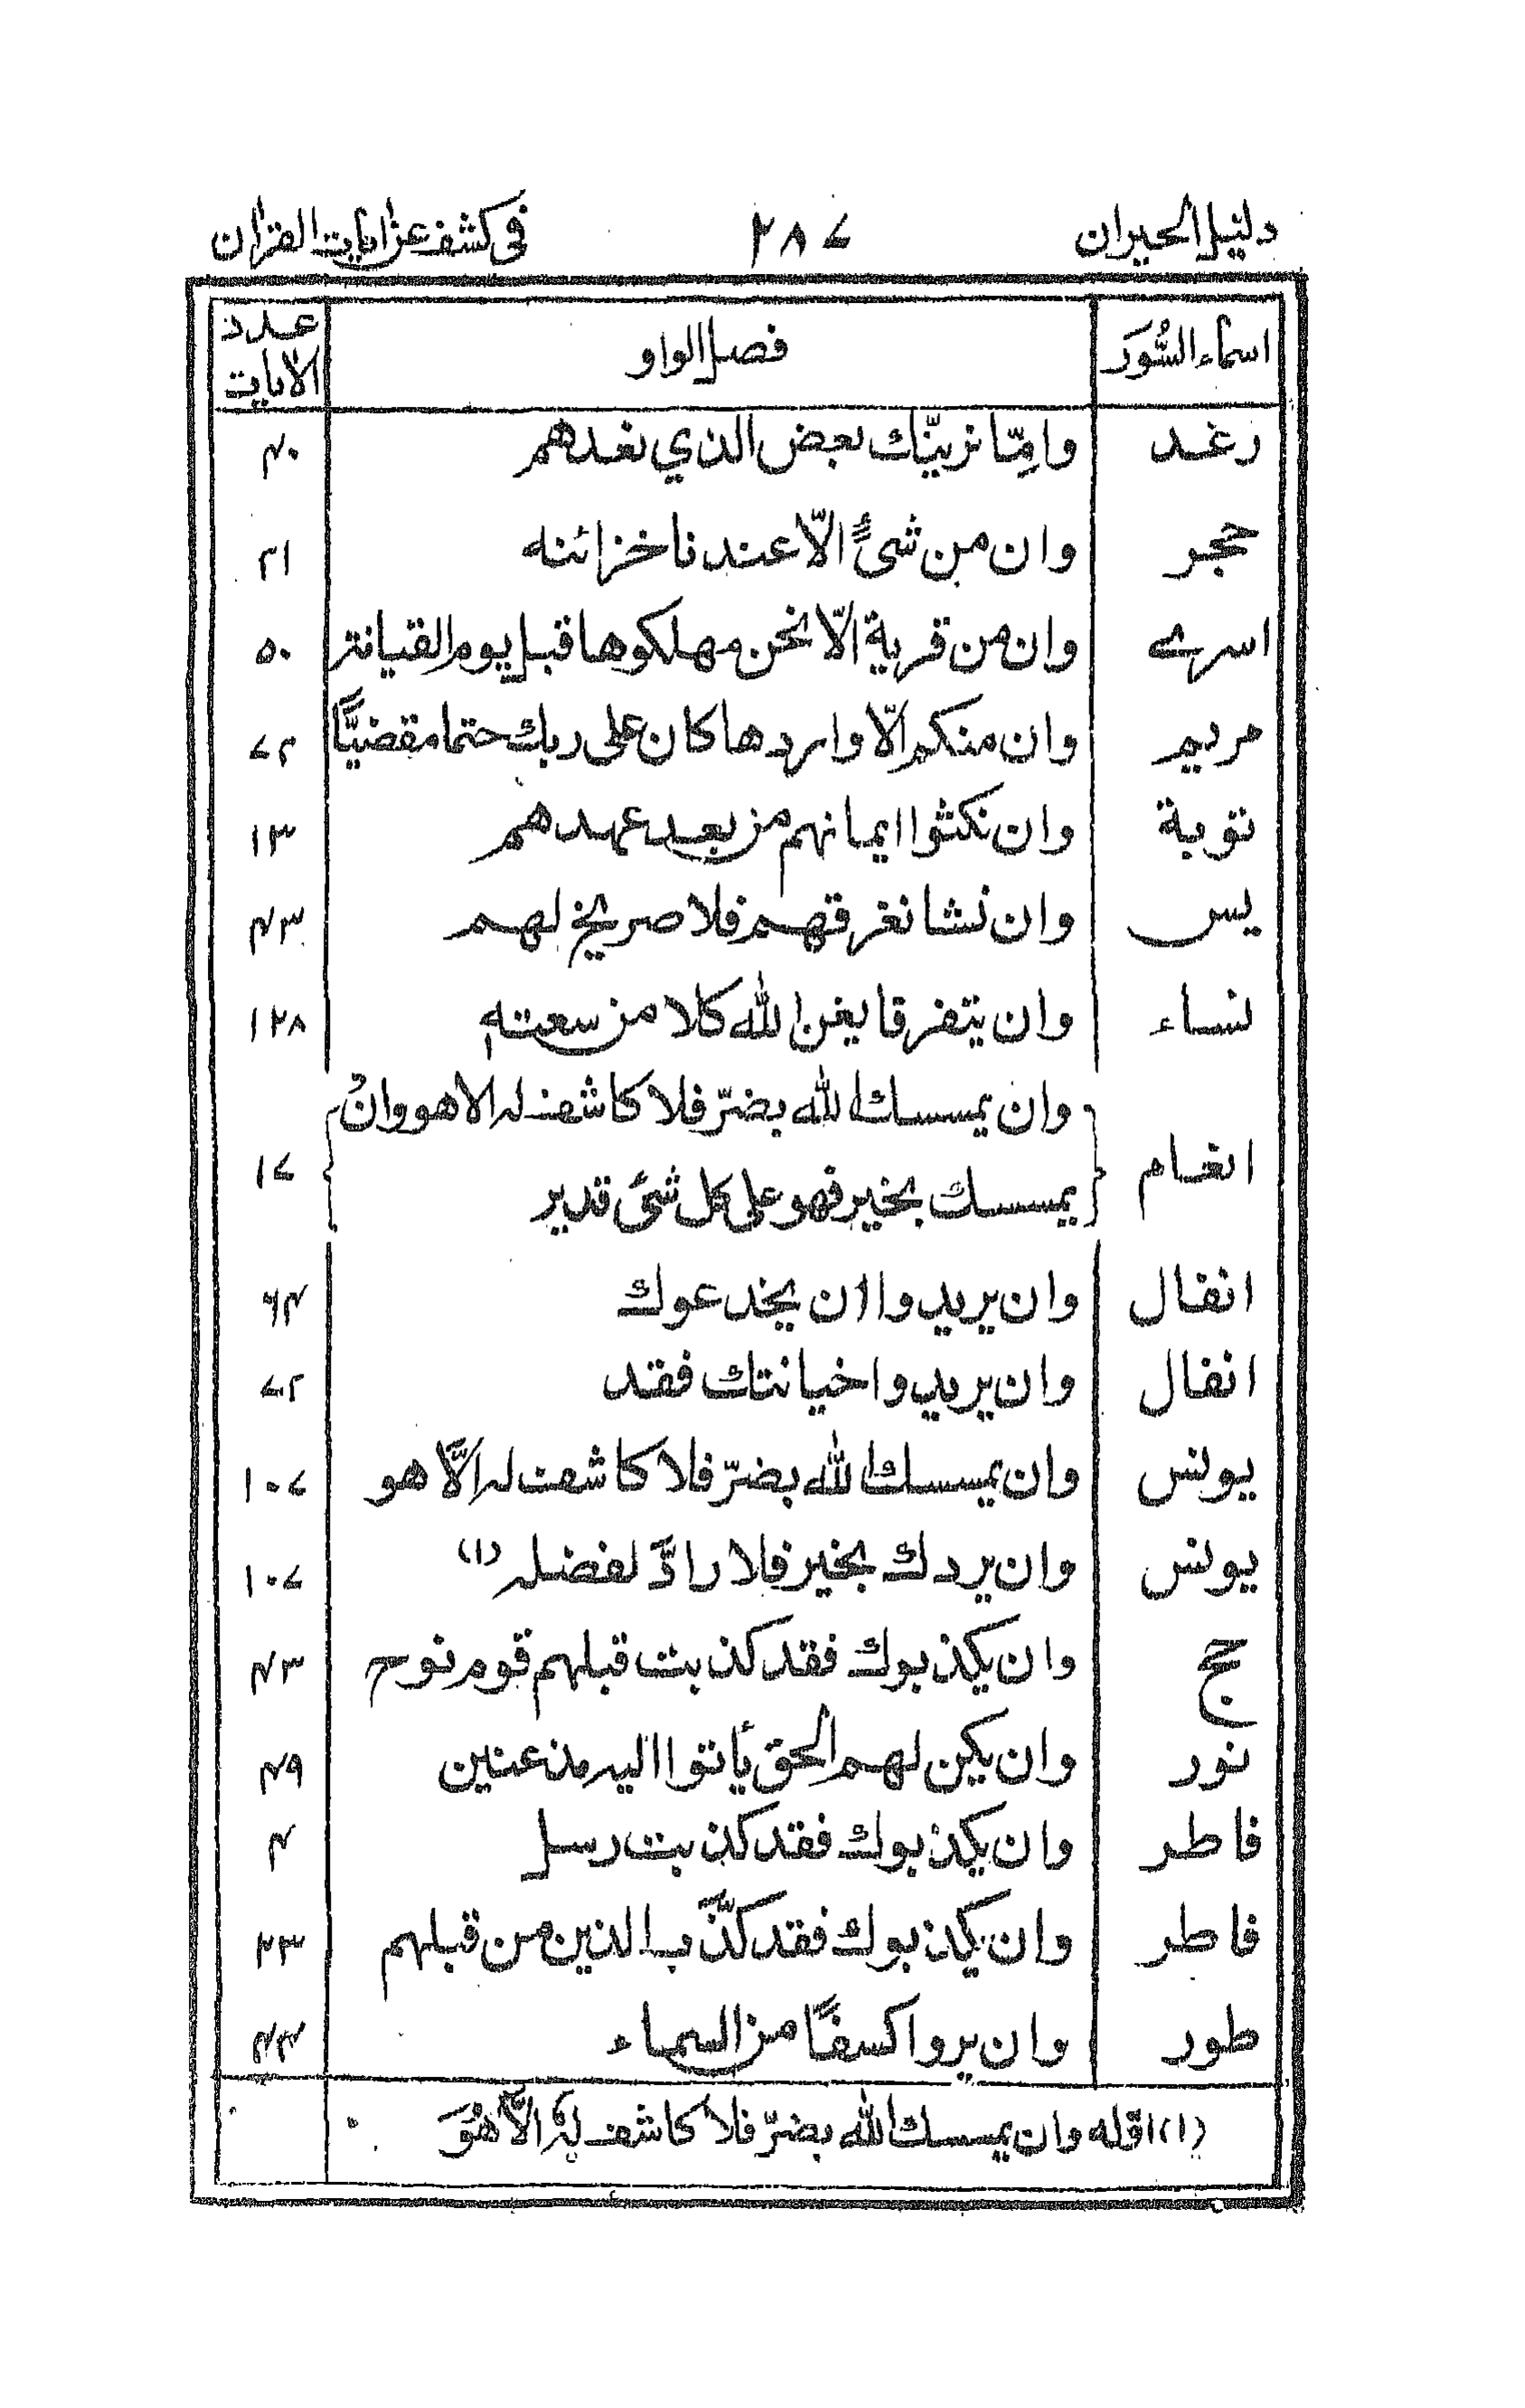 دليل الحيران ٢٨٧ في كشف عن ايات القران
اسماء السُّوَر فصل الواو عدد الايات
رعد وامّا نرينّك بعض الذي نعدهم ۴۰
حجر وان من شئ الّا عندنا خزائنه ٢١
اسرے وان من قرية الّا نحن مهلكوها قبل يوم القيامة ٥٠
مريم وان منكم الّا واردها كان على ربك حتما مقضيًّا ٧٢
توبة وان نكثوا ايمانهم من بعد عهدهم ١٣
يس وان نشا نغرقهم فلا صريخ لهم ۴٣
نساء وان يتفرقا يغن الله كلا من سعته ١٢٨
انعام وان يمسسك الله بضرّ فلا كاشف له الا هو وان
يمسسك بخير فهو على كل شئ قدير ١٧
انفال وان يريدوا ان يخدعوك ۶۴
انفال وان يريدوا خيانتك فقد ٧٢
يونس وان يمسسك الله بضرّ فلا كاشف له الّا هو ١٠٧
يونس وان يردك بخير فلا رادّ لفضله (١) ١٠٧
حج وان يكذبوك فقد كذبت قبلهم قوم نوح ۴٣
نور وان يكن لهم الحق يأتوا اليه مذعنين ۴٩
فاطر وان يكذبوك فقد كذبت رسل ۴
فاطر وان يكذبوك فقد كذّب الذين من قبلهم ٢٣
طور وان يروا كسفًا من السماء ۴۴
(١) اوله وان يمسسك الله بضرّ فلا كاشف لهُ الّا هُوَ